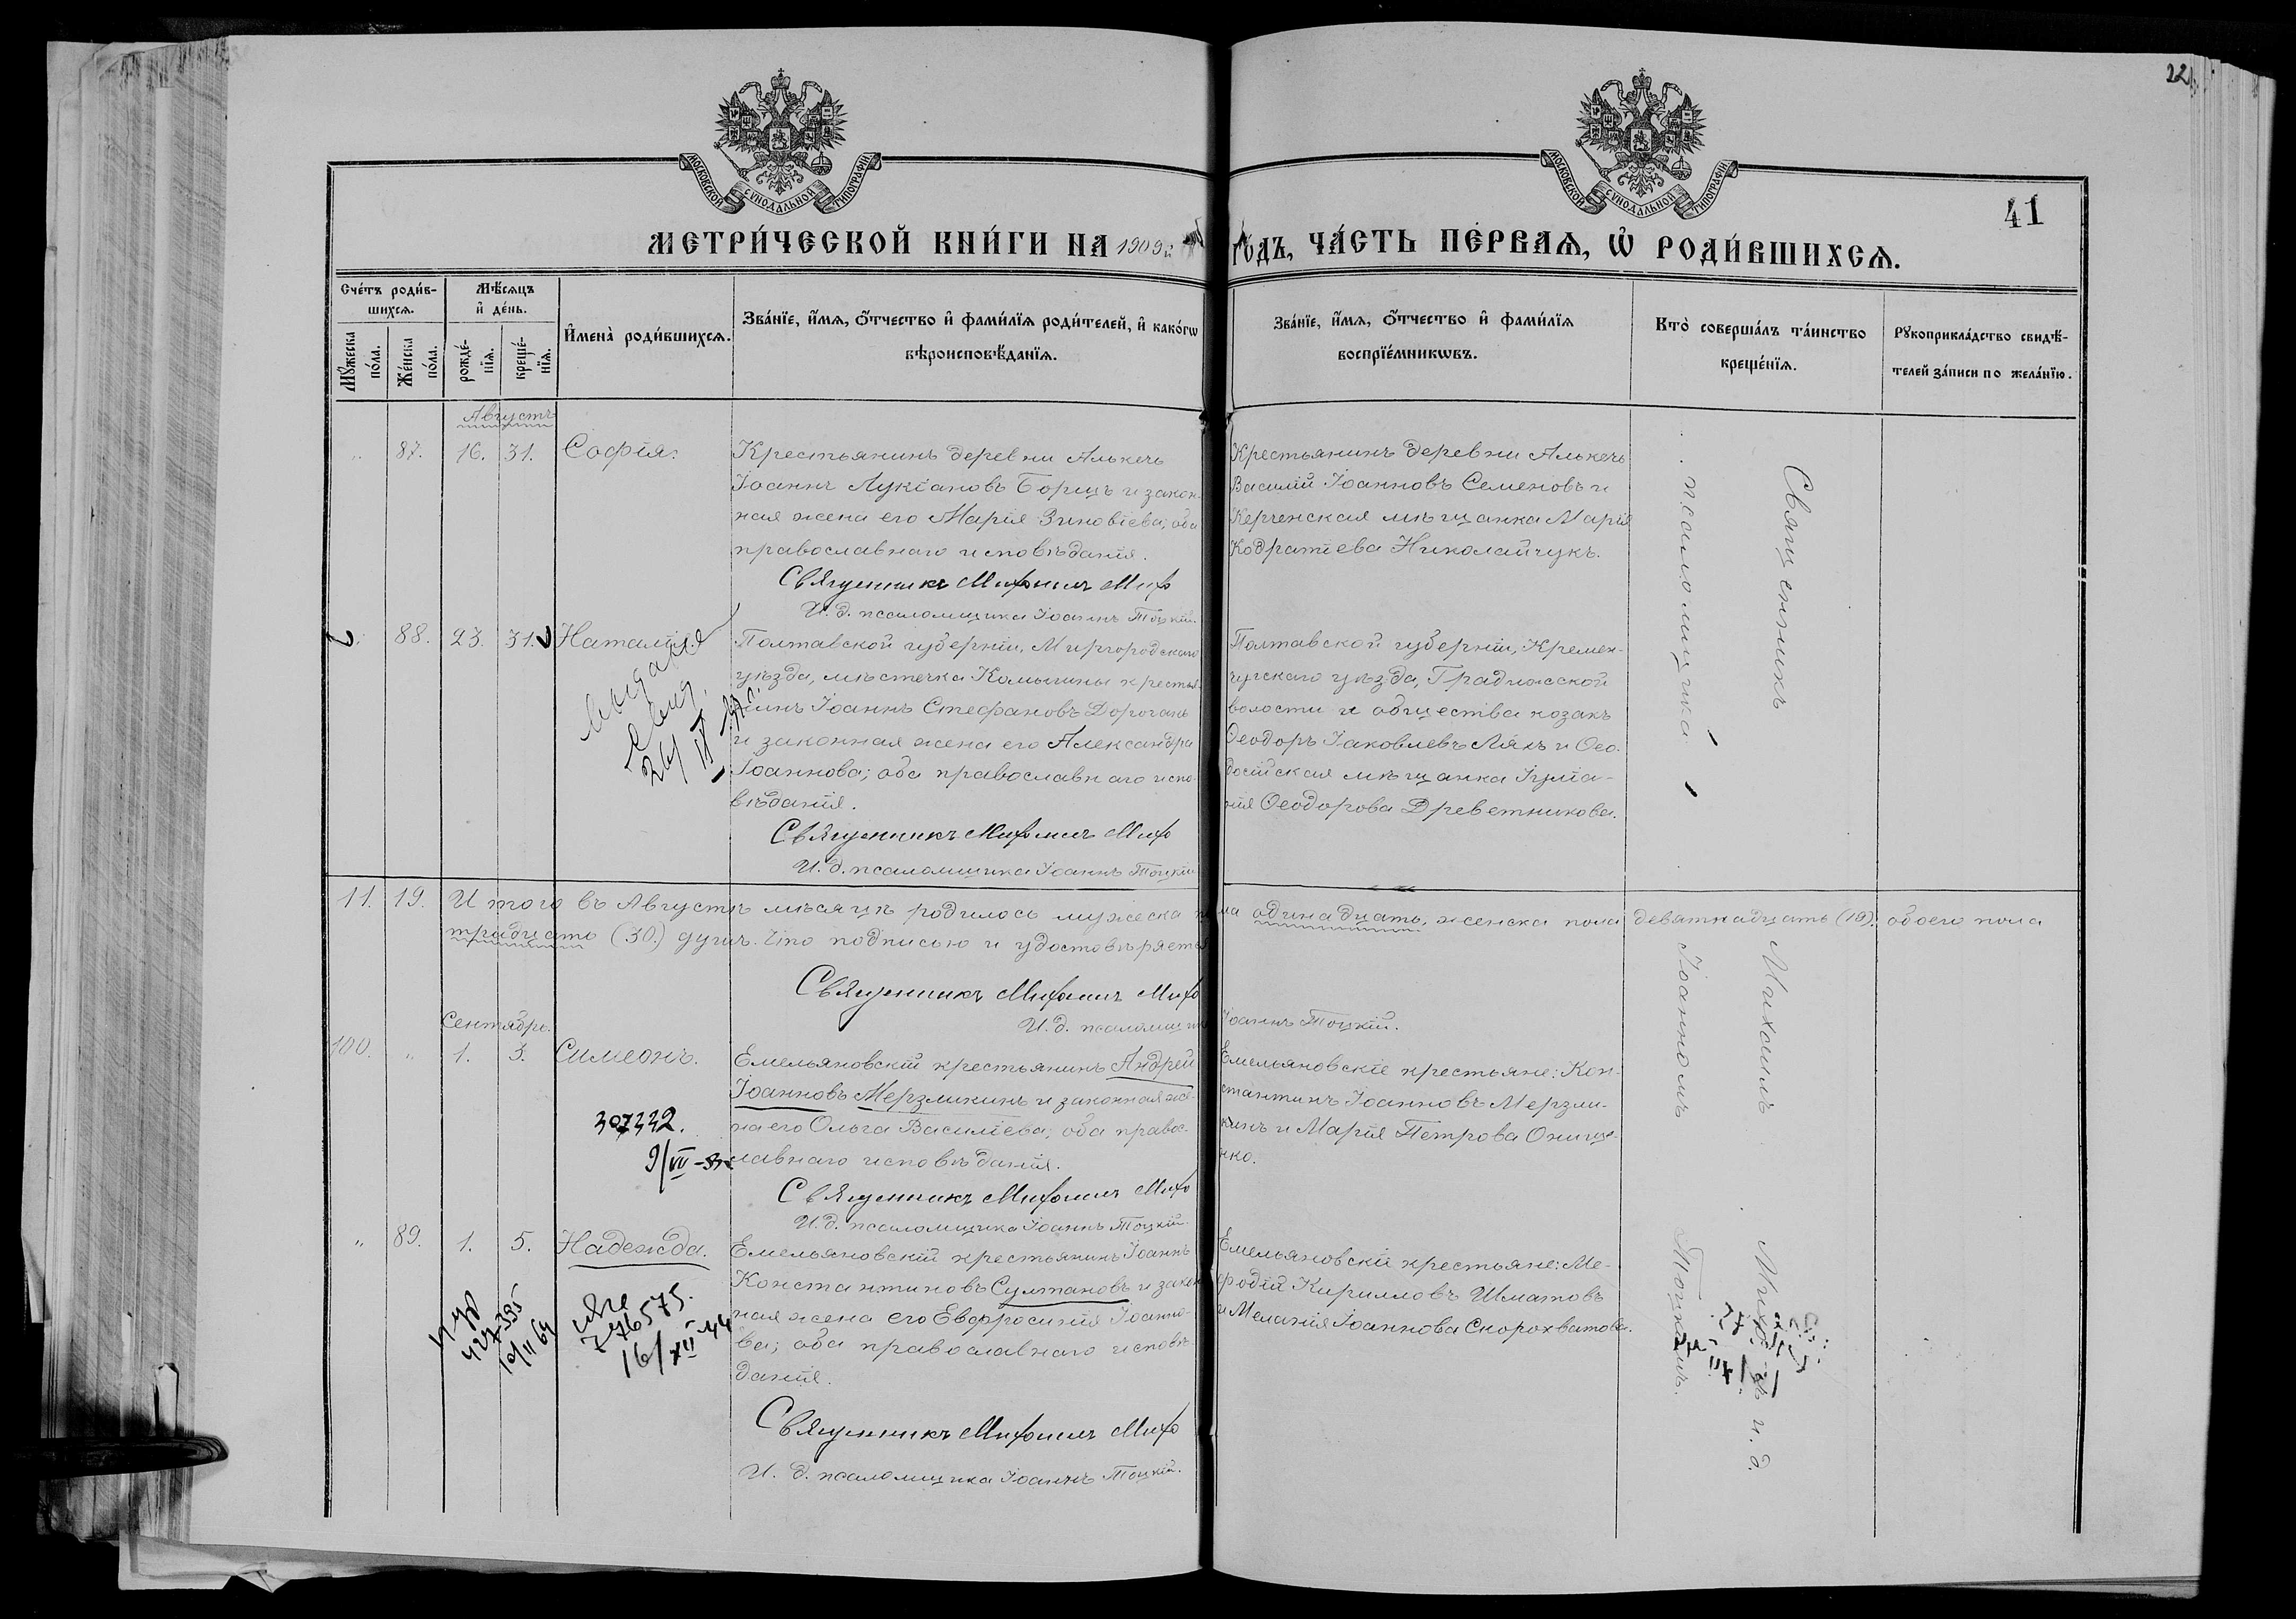 22
МОСКОВСКОЙ СѴНОДАЛЬНОЙ ТИПОГРАФІИ
МОСКОВСКОЙ СѴНОДАЛЬНОЙ ТИПОГРАФІИ
41
МЕТРИ́ЧЕСКОЙ КНИ́ГИ НА 1909й
ГО́ДЪ, ЧА́СТЬ ПЕ́РВАѦ, Ѡ҆ РОДИ́ВШИХСѦ.
Сче́тъ роди́в-
шихсѧ.
Мꙋ́жеска по́ла.
Же́нска по́ла.
Мѣ́сѧцъ
и҆ де́нь.
рожде́-
нїѧ.
креще́-
нїѧ.
И҆мена̀ роди́вшихсѧ.
Зва́нїе, и҆́мѧ, ѻ҆́тчество и҆ фами́лїѧ роди́телей, и҆ како́гѡ
вѣроисповѣ́данїѧ.
Зва́нїе, и҆́мѧ, ѻ҆́тчество и҆ фами́лїѧ
воспрїе́мникѡвъ.
Кто̀ соверша́лъ та́инство
креще́нїѧ.
Рꙋкоприкла́дство свидѣ́-
телей за́писи по жела́нїю.
Августъ
„ 87. 16. 31. Софія.
Крестьянинъ деревни Алькечь
Іоаннъ Лукіановъ Борщъ и закон-
ная жена его Марія Зиновіева; оба
православнаго исповѣданія.
Священникъ Михаилъ Михо
И. д. псаломщика Іоаннъ Тоцкій.
Крестьянинъ деревни Алькечь
Василій Іоанновъ Семеновъ и
Керченская мѣщанка Марія
Кодратіева Николайчукъ.
88. 23. 31. Наталія.
Полтавской губерніи, Миргородскаго
уѣзда, мѣстечка Комышны крестья-
нинъ Іоаннъ Стефановъ Дорогань
и законная жена его Александра
Іоаннова; оба православнаго испо-
вѣданія.
Священникъ Михаилъ Михо
И. д. псаломщика Іоаннъ Тоцкій
Полтавской губерніи, Кремен-
чугскаго уѣзда, Градижской
волости и общества козакъ
Ѳеодоръ Іаковлевъ Ляхъ и Ѳео-
досійская мѣщанка Іуліа-
нія Ѳеодорова Древетникова.
11. 19. Итого въ Августѣ мѣсяцѣ родилось мужеска пола одинадцать, женска пола девятнадцать (19). обоего пола
тридцать (30.) душъ. Что подписью и удостовѣряется
Священникъ Михаилъ Михо
И. д. псаломщика Іоаннъ Тоцкій.
Сентябрь.
100. „ 1. 3. Симеонъ.
Емельяновскій крестьянинъ Андрей
Іоанновъ Мерзликинъ и законная же-
на его Ольга Василіева; оба правос-
лавнаго исповѣданія.
Священникъ Михаилъ Михо
И. д. псаломщика Іоаннъ Тоцкій.
307332.
9/VII
Емельяновскіе крестьяне: Кон-
стантинъ Іоанновъ Мерзли-
кинъ и Марія Петрова Онище-
нко.
„ 89. 1. 5. Надежда.
Емельяновскій крестьянинъ Іоаннъ
Константиновъ Султановъ и закон-
ная жена его Евфросинія Іоанно-
ва; оба православнаго исповѣ-
данія.
Священникъ Михаилъ Михо
И. д. псаломщика Іоаннъ Тоцкій.
776575.
16/XII 44
Емельяновскіе крестьяне: Ме-
ѳодій Кирилловъ Шматовъ
и Меланія Іоаннова Скорохватова.
Священникъ Михаилъ и. д.
псаломщика Іоанномъ Тоцкимъ.